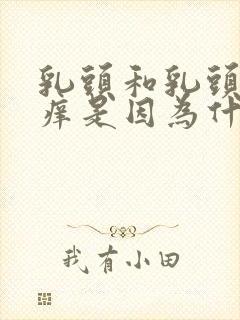 乳頭和乳頭
痒是因為什
我有小田